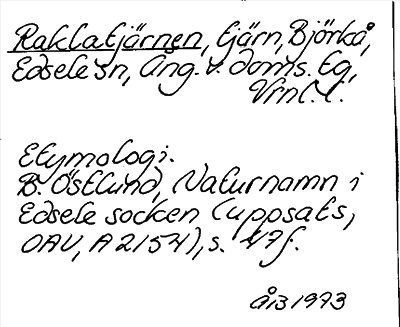 Raklatjärnen, tjärn, Björkå,
Edsele sn, Ång. v. doms. tg,
Vrnl. M.
Etymologi.
B. Östlund, Naturnamn i
Edsele socken (uppsats,
OAU, A 2154), s. 47f.
ÅB 1973